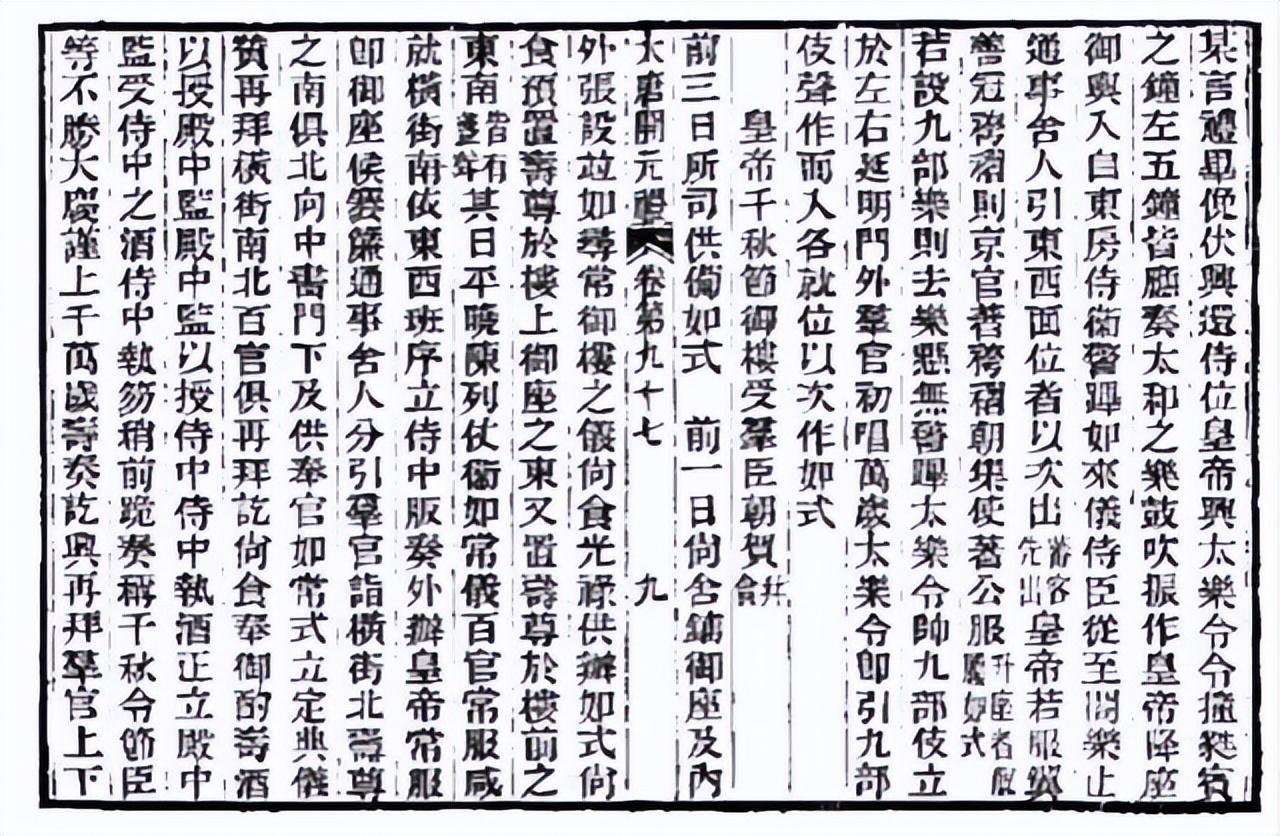 某言禮畢俛伏興還侍位皇帝興太樂令令撞蕤賓
之鐘左五鐘皆應奏太和之樂鼓吹振作皇帝降座
御輿入自東房侍衛警蹕如來儀侍臣從至閤樂止
通事舍人引東西面位者以次出蕃客先出皇帝若服翼
善冠袴褶則京官著袴褶朝集使著公服升座者服履如式
若設九部樂則去樂懸無警蹕太樂令帥九部伎立
於左右延明門外羣官初唱萬歲太樂令即引九部
伎聲作而入各就位以次作如式
皇帝千秋節御樓受羣臣朝賀并會
前三日所司供備如式 前一日尚舍鋪御座及內
大唐開元禮 卷第九十七 九
外張設竝如尋常御樓之儀尚食光祿供辦如式尚
食預置壽尊於樓上御座之東又置壽尊於樓前之
東南皆有其日平曉陳列仗衛如常儀百官常服咸
就橫街南依東西班序立侍中版奏外辦皇帝常服
即御座侯簾通事舍人分引羣官詣橫街北壽尊
之南俱北向中書門下及供奉官如常式立定典儀
贊再拜橫街南北百官俱再拜訖尚食奉御酌壽酒
以授殿中監殿中監以授侍中侍中執酒正立殿中
監受侍中之酒侍中執笏稍前跪奏稱千秋令節臣
等不勝大慶謹上千萬歲壽奏訖興再拜羣官上下